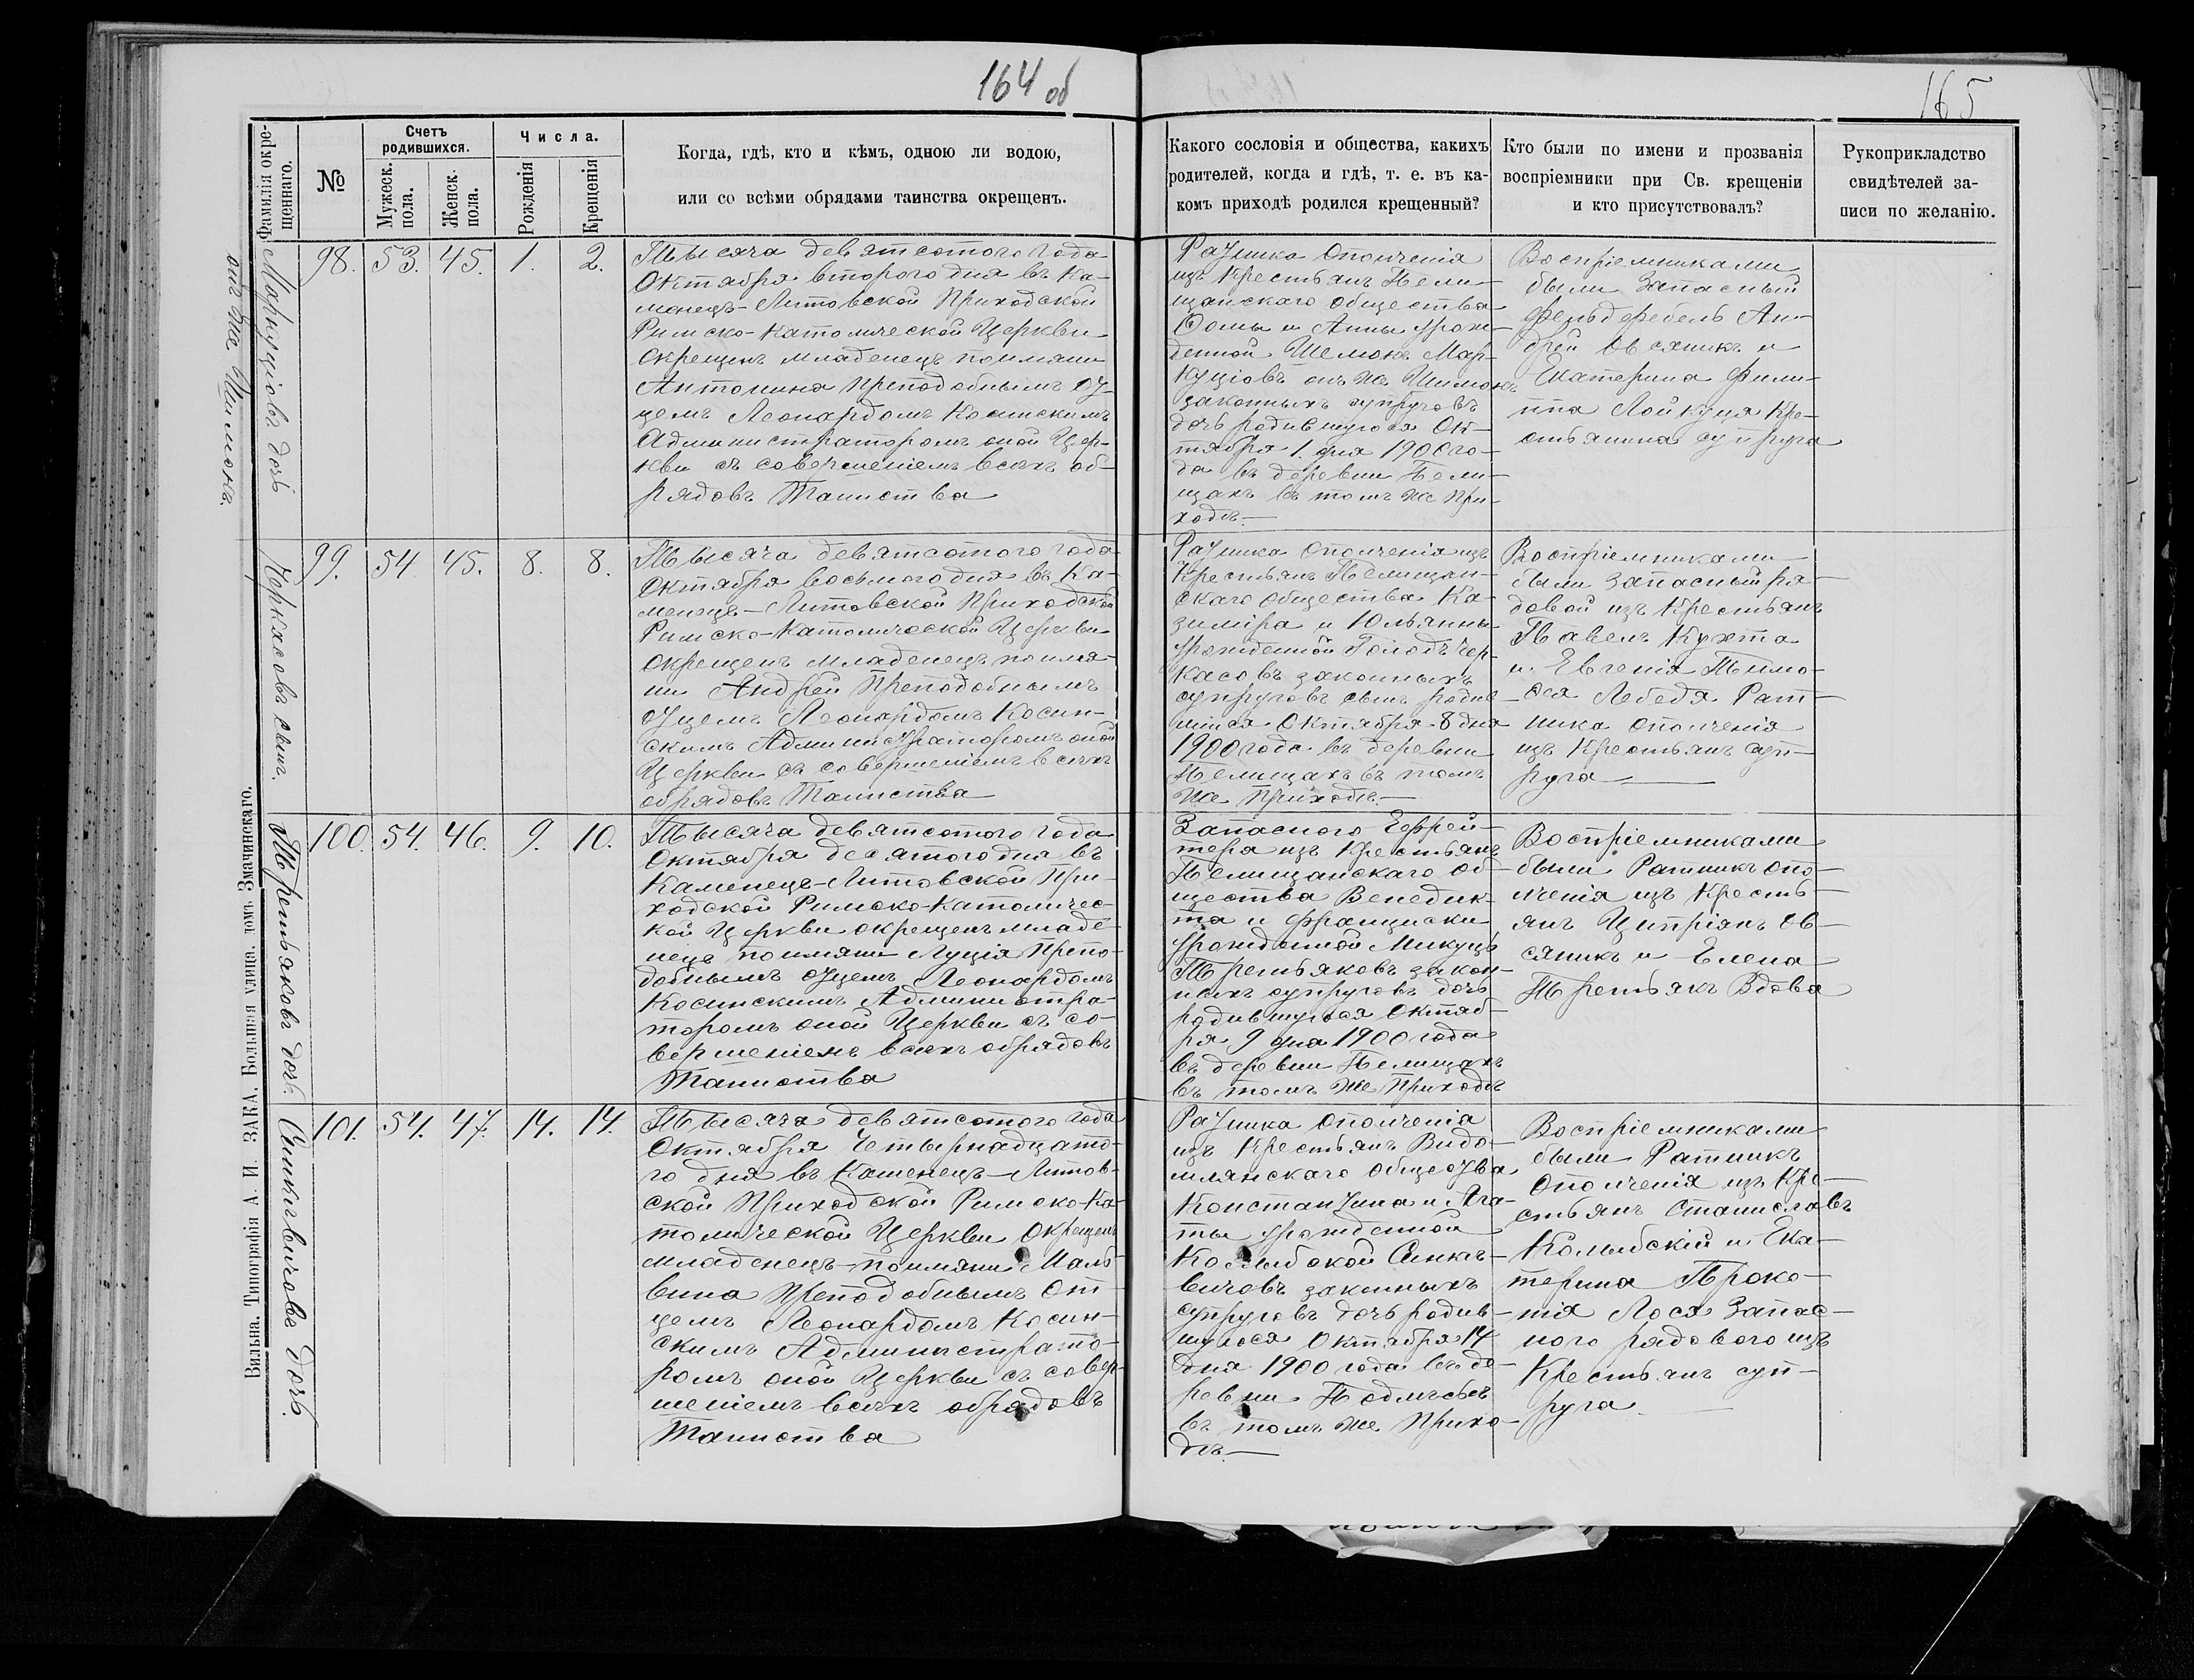 164 об
165
Фамилія окре-
щеннаго.
№
Счетъ
родившихся.
Мужеск.
пола.
Женск.
пола.
Числа.
Рожденія
Крещенія
Когда, гдѣ, кто и кѣмъ, одною ли водою,
или со всѣми обрядами таинства окрещенъ.
Какого сословія и общества, какихъ
родителей, когда и гдѣ, т. е. въ ка-
комъ приходѣ родился крещенный?
Кто были по имени и прозванія
воспріемники при Св. крещеніи
и кто присутствовалъ?
Рукоприкладство
свидѣтелей за-
писи по желанію.
Маркуціовъ дочь
онъ же Шимонъ.
98. 53. 45. 1. 2.
Тысяча девятсотого года
Октября второго дня въ Ка-
менецъ-Литовской Приходской
Римско-Католической Церкви
Окрещенъ младенецъ поимяни
Антонина Преподобнымъ От-
цемъ Леонардомъ Косинскимъ
Администраторомъ оной Цер-
кви съ совершеніемъ всѣхъ об-
рядовъ Таинства
Ратника Ополченія
изъ Крестьянъ Пели-
щанскаго общества
Ѳомы и Анны урож-
денной Шемокъ Мар-
куціовъ онъ же Шимонъ
законныхъ супруговъ
дочь родившуюся Ок-
тября 1. дня 1900 го-
да въ деревни Пели-
щахъ въ томъ же При-
ходѣ.—
Воспріемниками
были Запасный
Фельдфебель Ан-
дрей Овсяникъ и
Екатерина Фили-
ппа Лойкуця Кре-
стьянина супруга
Черкасовъ сынъ.
99. 54. 45. 8. 8.
Тысяча девятсотого года
Октября восьмого дня въ Ка-
менецъ-Литовской Приходской
Римско-Католической Церкви
окрещенъ младенецъ поимя-
ни Андрей Преподобнымъ
Отцемъ Леонардомъ Косин-
скимъ Администраторомъ оной
Церкви съ совершеніемъ всѣхъ
обрядовъ Таинства
Ратника Ополченія изъ
Крестьянъ Пелищан-
скаго Общества Ка-
зиміра и Юльянны
урожденной Голодъ Чер-
касовъ законныхъ
супруговъ сынъ родив-
шійся Октября 8 дня
1900 года въ деревни
Пелищахъ въ томъ
же Приходѣ.—
Воспріемниками
были Запасный ря-
довой изъ Крестьянъ
Павелъ Кухта
и Евгенія Тимо-
ѳея Лебедя Рат-
ника Ополченія
изъ Крестьянъ суп-
руга—
Третьяковъ дочь.
100. 54. 46. 9. 10.
Тысяча девятсотого года
Октября десятого дня въ
Каменецъ-Литовской При-
ходской Римско-Католичес-
кой Церкви окрещенъ младе-
нецъ поимяни Луція Препо-
добнымъ Отцемъ Леонардомъ
Косинскимъ Администра-
торомъ оной Церкви съ со-
вершеніемъ всѣхъ обрядовъ
Таинства
Запасного Ефрей-
тера изъ Крестьянъ
Пелищанскаго Об-
щества Венедик-
та и Францишки
урожденной Микуцъ
Третьяковъ закон-
ныхъ супруговъ дочь
родившуюся Октяб-
ря 9 дня 1900 года
въ деревни Пелищахъ
въ томъ же Приходѣ
Воспріемниками
были Ратникъ Опо-
лченія изъ Кресть-
янъ Ципріянъ Ов-
сяникъ и Елена
Третьякъ Вдова
Синкѣвичовъ дочь.
101. 54. 47. 14. 14.
Тысяча девятсотого года
Октября Четырнадцато-
го дня въ Каменецъ-Литов-
ской Приходской Римско-Ка-
толической Церкви Окрещенъ
младенецъ поимяни Маль-
вина Преподобнымъ От-
цемъ Леонардомъ Косин-
скимъ Администрато-
ромъ оной Церкви съ совер-
шеніемъ всѣхъ обрядовъ
Таинства
Ратника Ополченія
изъ Крестьянъ Видо-
млянскаго Общества
Константина и Ага-
ты урожденной
Колыбской Синкѣ-
вичовъ законныхъ
супруговъ дочь родив-
шуюся Октября 14
дня 1900 года въ де-
ревни Подлѣсьѣ
въ томъ же Прихо-
дѣ.—
Воспріемниками
были Ратникъ
Ополченія изъ Кре-
стьянъ Станиславъ
Колыбскій и Ека-
терина Проко-
пія Лося Запас-
ного рядового изъ
Крестьянъ суп-
руга.—
Вильна. Типографія А. И. ЗАКА. Большая улица, домъ Змачинскаго.